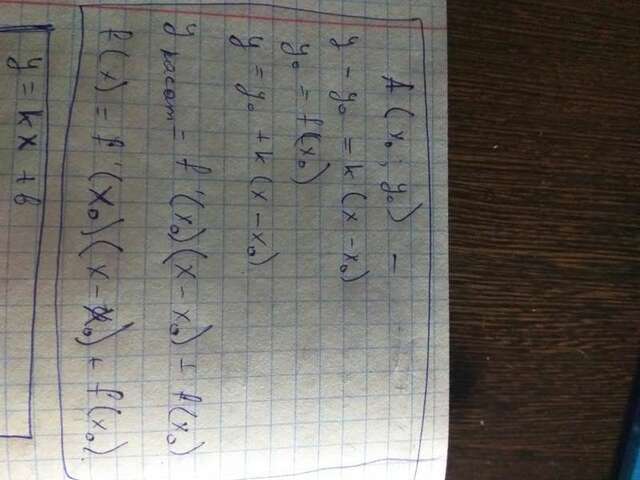 A (x₀; y₀) –
y – y₀ = k (x – x₀)
y₀ = f(x₀)
y = y₀ + k (x – x₀)
y касат = f'(x₀)(x – x₀) + f(x₀)
f(x) = f'(x₀)(x – x₀) + f(x₀)
y = kx + b